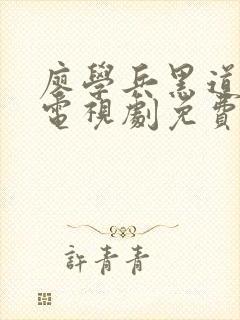 廖學兵黑道
電視劇免費
許青青